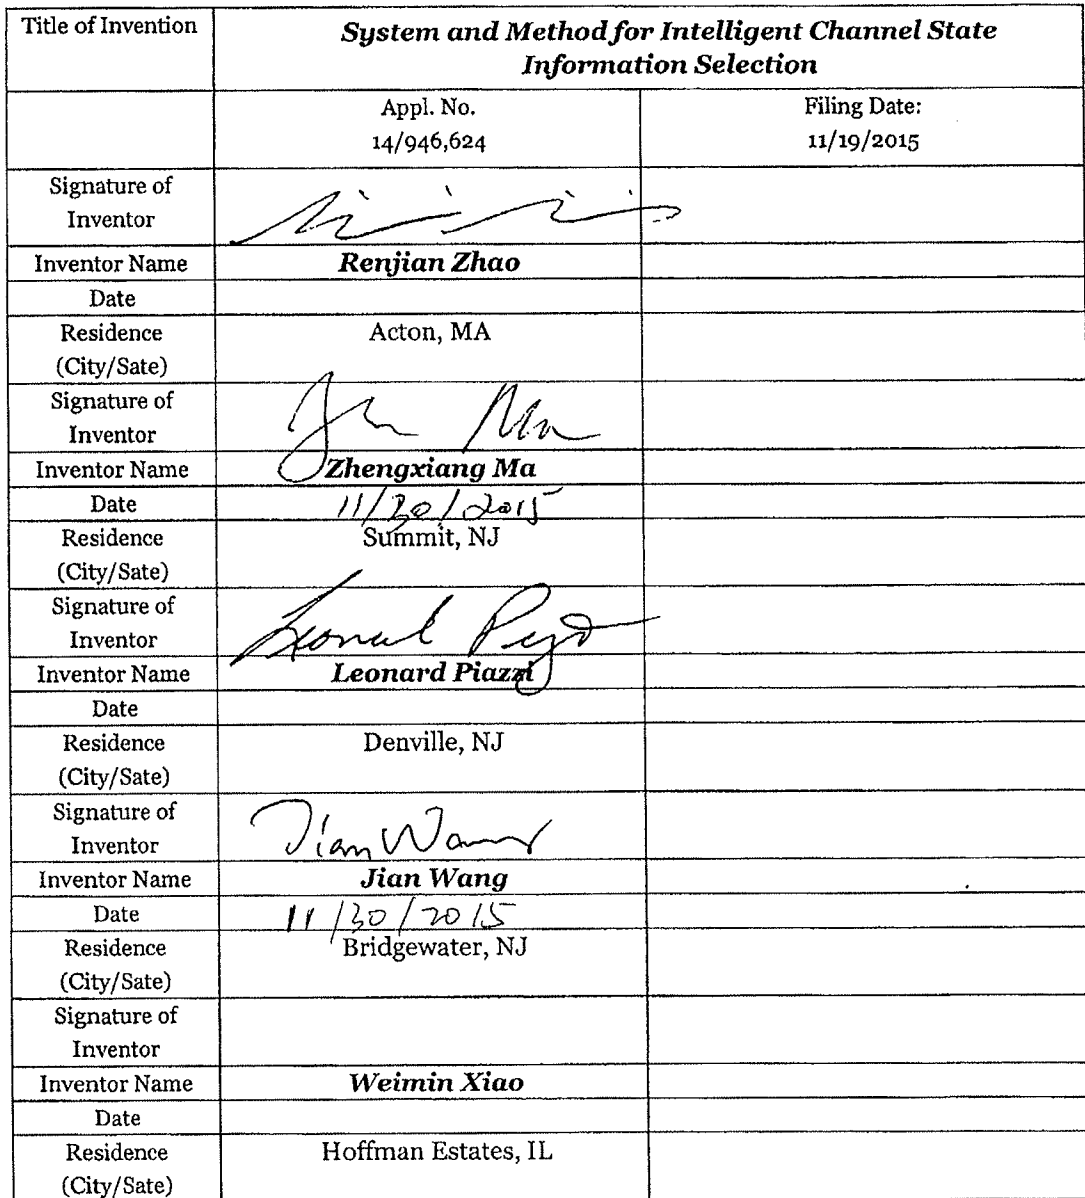 Title of Invention
System and Method for Intelligent Channel State
Information Selection
Appl. No.
14/946,624
Filing Date:
11/19/2015
Signature of
Inventor
Inventor Name
Renjian Zhao
Date
Residence
(City/Sate)
Acton, MA
Signature of
Inventor
Ma
Inventor Name
Zhengxiang Ma
Date
11/30/2015
Residence
(City/Sate)
Summit, NJ
Signature of
Inventor
Leonard
Inventor Name
Leonard Piazzi
Date
Residence
(City/Sate)
Denville, NJ
Signature of
Inventor
Jian Wang
Inventor Name
Jian Wang
Date
11/30/2015
Residence
(City/Sate)
Bridgewater, NJ
Signature of
Inventor
Inventor Name
Weimin Xiao
Date
Residence
(City/Sate)
Hoffman Estates, IL